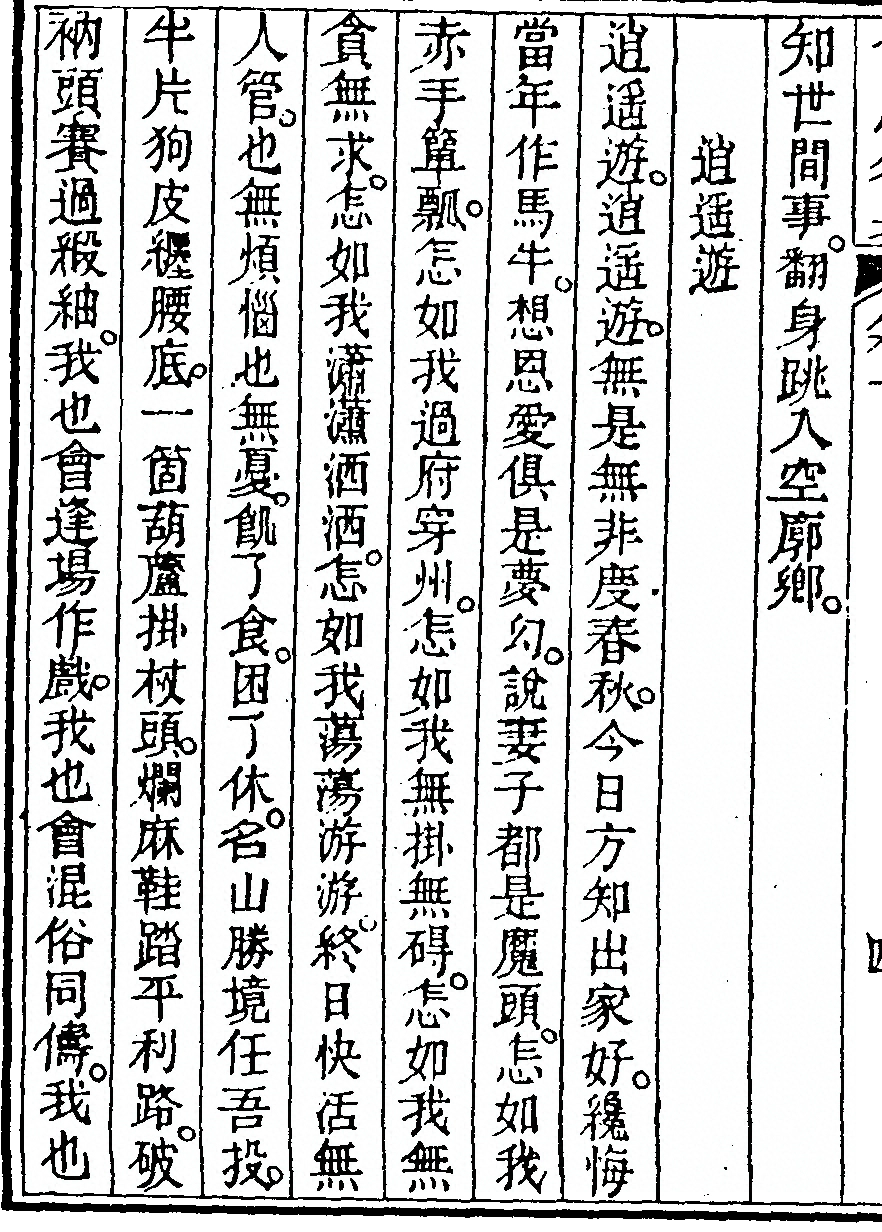 知世間事。翻身跳入空廓鄉。
逍遥遊
逍遥遊。逍遥遊。無是無非度春秋。今日方知出家好。纔悔
當年作馬牛。想恩愛俱是夢幻。說妻子都是魔頭。怎如我
赤手簞瓢。怎如我過府穿州。怎如我無掛無碍。怎如我無
貪無求。怎如我瀟瀟洒洒。怎如我蕩蕩游游。終日快活無
人管。也無煩惱也無憂。飢了食。困了休。名山勝境任吾投。
半片狗皮纏腰底。一箇葫蘆掛杖頭。爛麻鞋踏平利路。破
衲頭賽過緞紬。我也會逢場作戲。我也會混俗同儔。我也